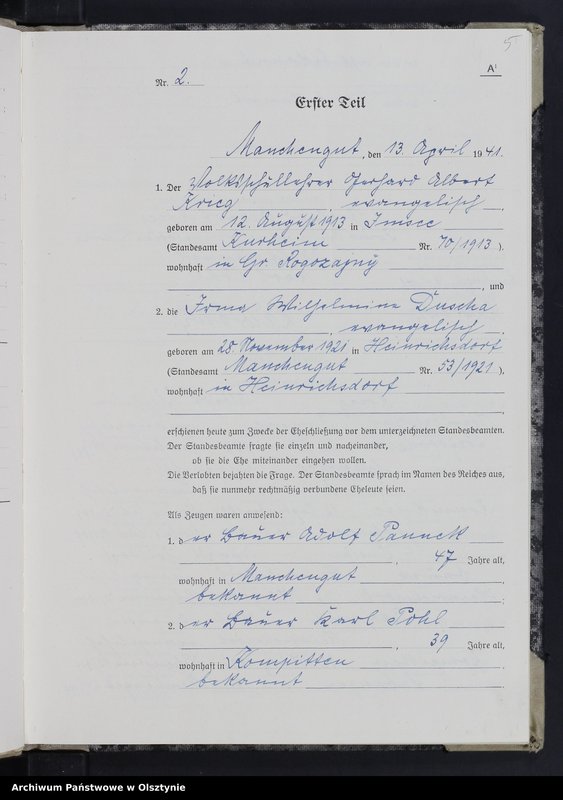 5
A¹
Nr. 2.
Erster Teil
Manchengut, den 13. April 1941.
1. Der Volksschullehrer Gerhard Albert
Krieg, evangelisch
geboren am 12. August 1913 in Imsee
(Standesamt Kurheim Nr. 70/1913).
wohnhaft in Gr Rogozajny
, und
2. die Irma Wilhelmine Duscha
, evangelisch
geboren am 28. November 1921 in Heinrichsdorf
(Standesamt Manchengut Nr. 53/1921),
wohnhaft in Heinrichsdorf
erschienen heute zum Zwecke der Eheschließung vor dem unterzeichneten Standesbeamten.
Der Standesbeamte fragte sie einzeln und nacheinander,
ob sie die Ehe miteinander eingehen wollen.
Die Verlobten bejahten die Frage. Der Standesbeamte sprach im Namen des Reiches aus,
daß sie nunmehr rechtmäßig verbundene Eheleute seien.
Als Zeugen waren anwesend:
1. der Bauer Adolf Pannek
, 47 Jahre alt,
wohnhaft in Manchengut
bekannt
2. der Bauer Karl Pohl
, 39 Jahre alt,
wohnhaft in Kompitten
bekannt
Archiwum Państwowe w Olsztynie